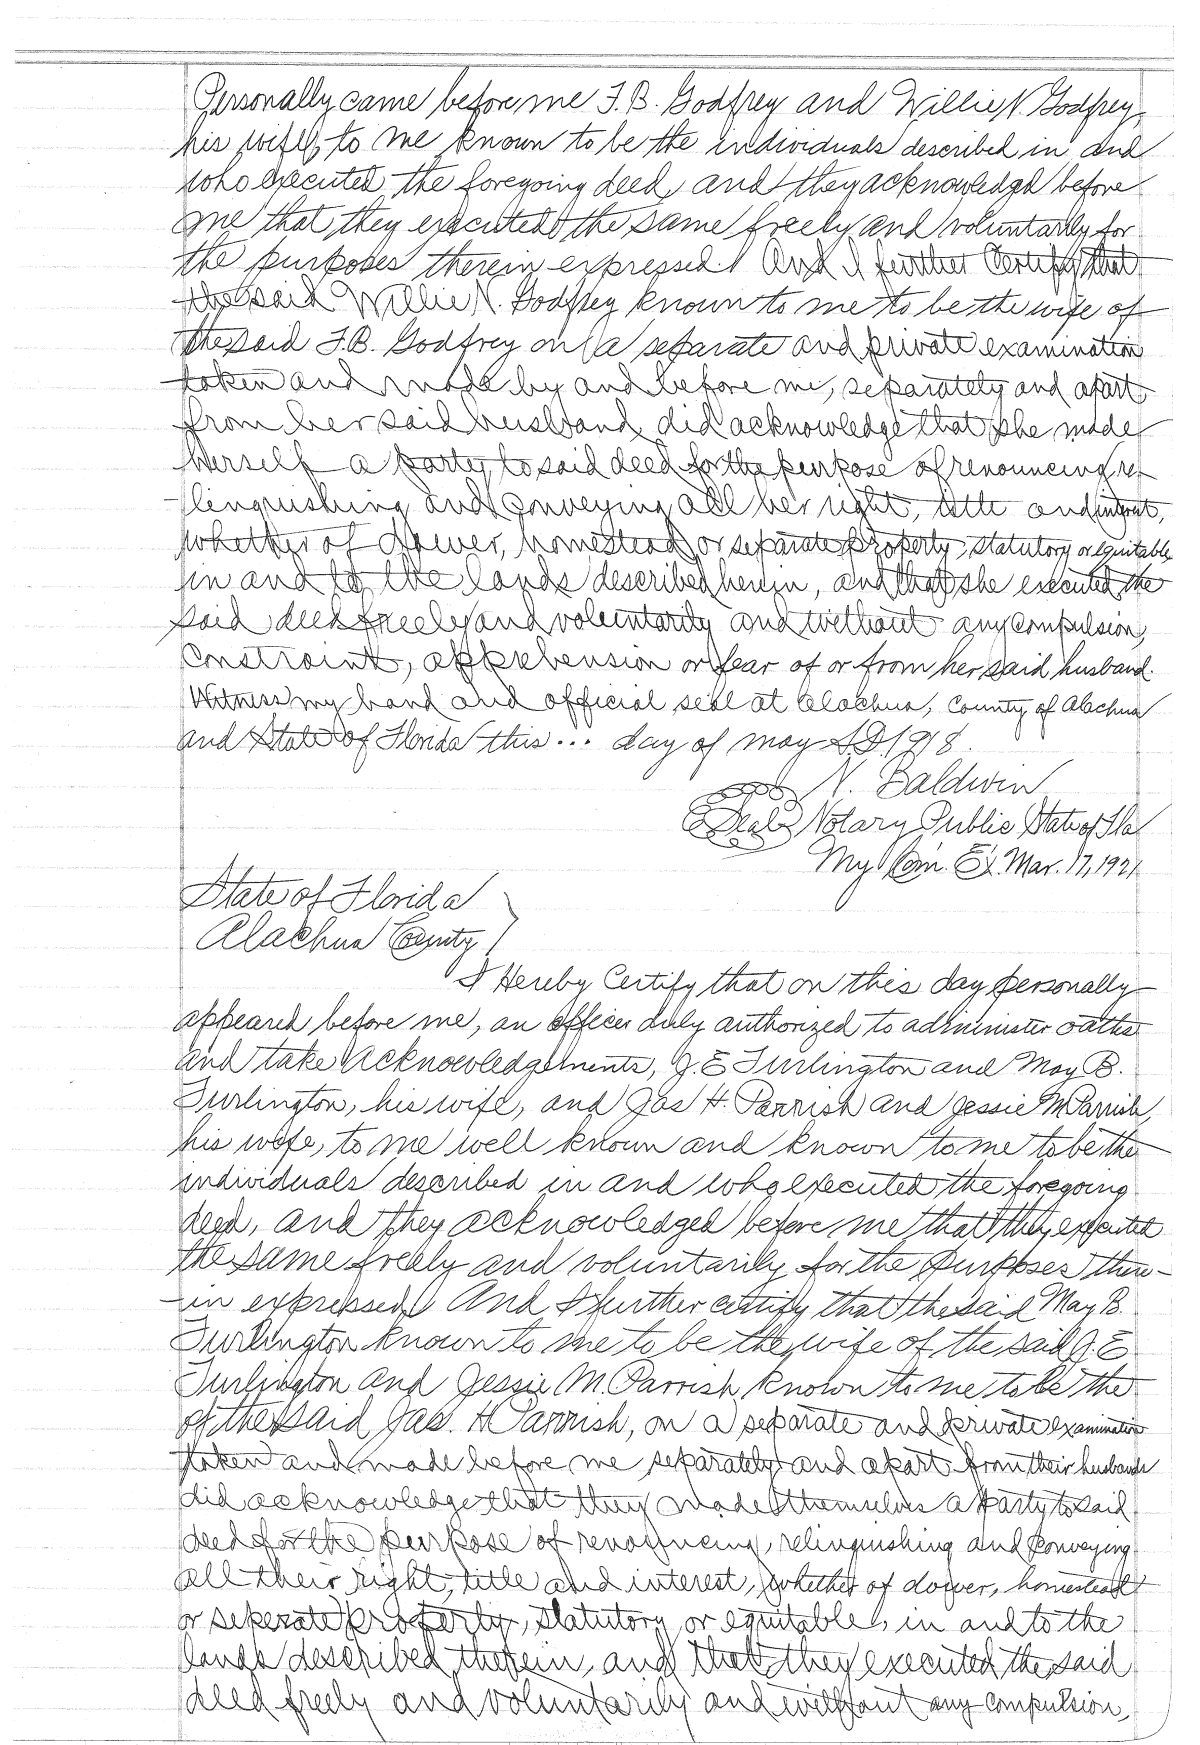 Personally came before me F.B. Godfrey and Willie N. Godfrey,
his wife, to me known to be the individuals described in and
who executed the foregoing deed, and they acknowledged before
me that they executed the same freely and voluntarily for
the purposes therein expressed. And I further Certify that
the said Willie N. Godfrey known to me to be the wife of
the said F.B. Godfrey on a separate and private examination
taken and made by and before me, separately and apart
from her said husband did acknowledge that she made
herself a party to said deed for the purpose of renouncing, re-
linquishing and conveying all her right, title and interest,
whether of dower, homestead or separate property, statutory or equitable
in and to the lands described herein, and that she executed the
said deed freely and voluntarily and without any compulsion,
Constraint, apprehension or fear of or from her said husband.
Witness my hand and official seal at Alachua, County of Alachua
and State of Florida this ... day of May A.D. 1918.
N. Baldwin
Seal Notary Public State of Fla
My Com. Ex. Mar. 17, 1921
State of Florida
Alachua County
I Hereby Certify that on this day personally
appeared before me, an officer duly authorized to administer oaths
and take acknowledgements, J.E Turlington and May B.
Turlington, his wife, and Jas H. Parrish and Jessie M. Parrish,
his wife, to me well known and known to me to be the
individuals described in and who executed the foregoing
deed, and they acknowledged before me that they executed
the same freely and voluntarily for the purposes there-
in expressed. And I further certify that the said May B.
Turlington known to me to be the wife of the said J.E
Turlington and Jessie M. Parrish known to me to be the
of the said Jas. H Parrish, on a separate and private examination
taken and made before me separately and apart from their husbands
did acknowledge that they made themselves a party to said
deed for the purpose of renouncing, relinquishing and conveying
all their right, title and interest, whether of dower, homestead
or seperate property, statutory or equitable, in and to the
lands described therein, and that they executed the said
deed freely and voluntarily and without any compulsion,